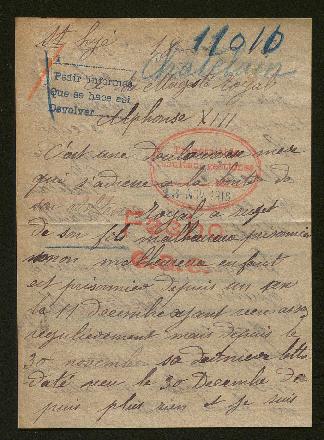 11010
Chatelain
Pedir informes
Que se hace así
Devolver
a sa Majesté Royal
Alphonse XIII
C'est une douloureuse mère
qui s'adresse a la bonté de
son Royal a sujet
de son fils malheureux prisonnier
mon malheureux enfant
est prisonnier depuis un an
la 11 decembre ayant recu assez
regulierement mais depuis le
30 novembre sa derniere lettre
daté recu le 30 Decembre de
puis plus rien et je suis